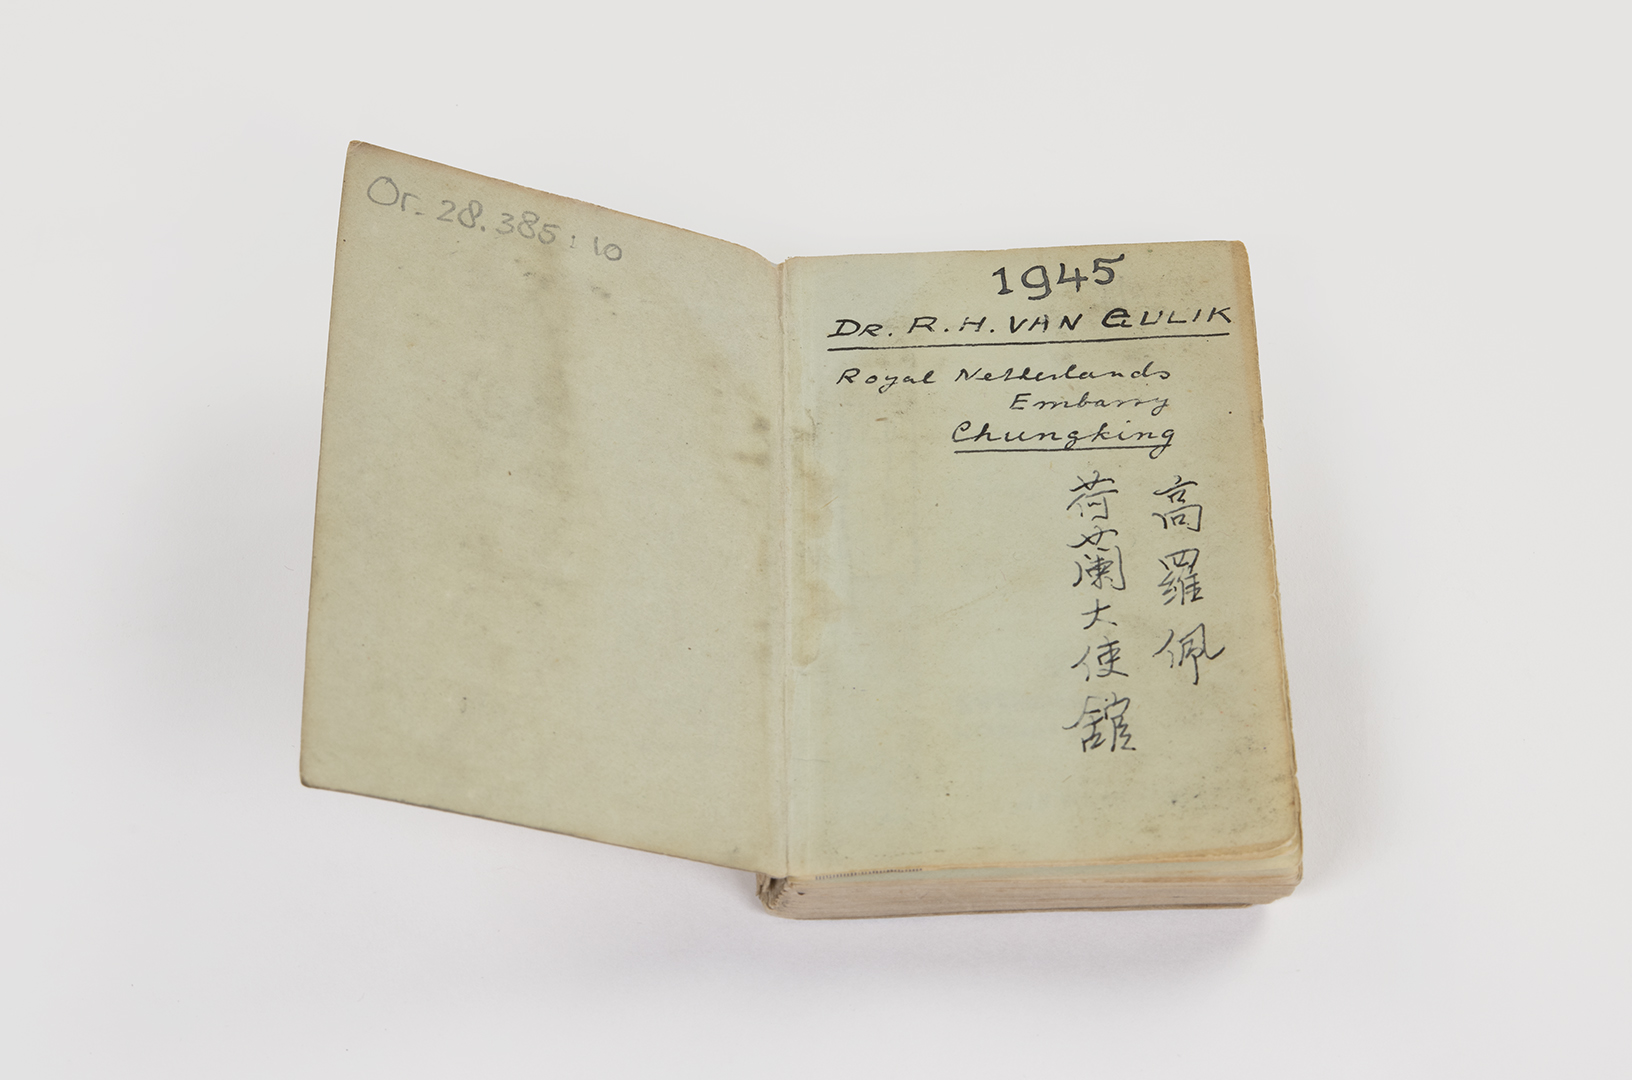 Or. 28.385 : 10
1945
DR. R. H. VAN GULIK
Royal Netherlands
Embassy
Chungking
高羅佩
荷蘭大使館